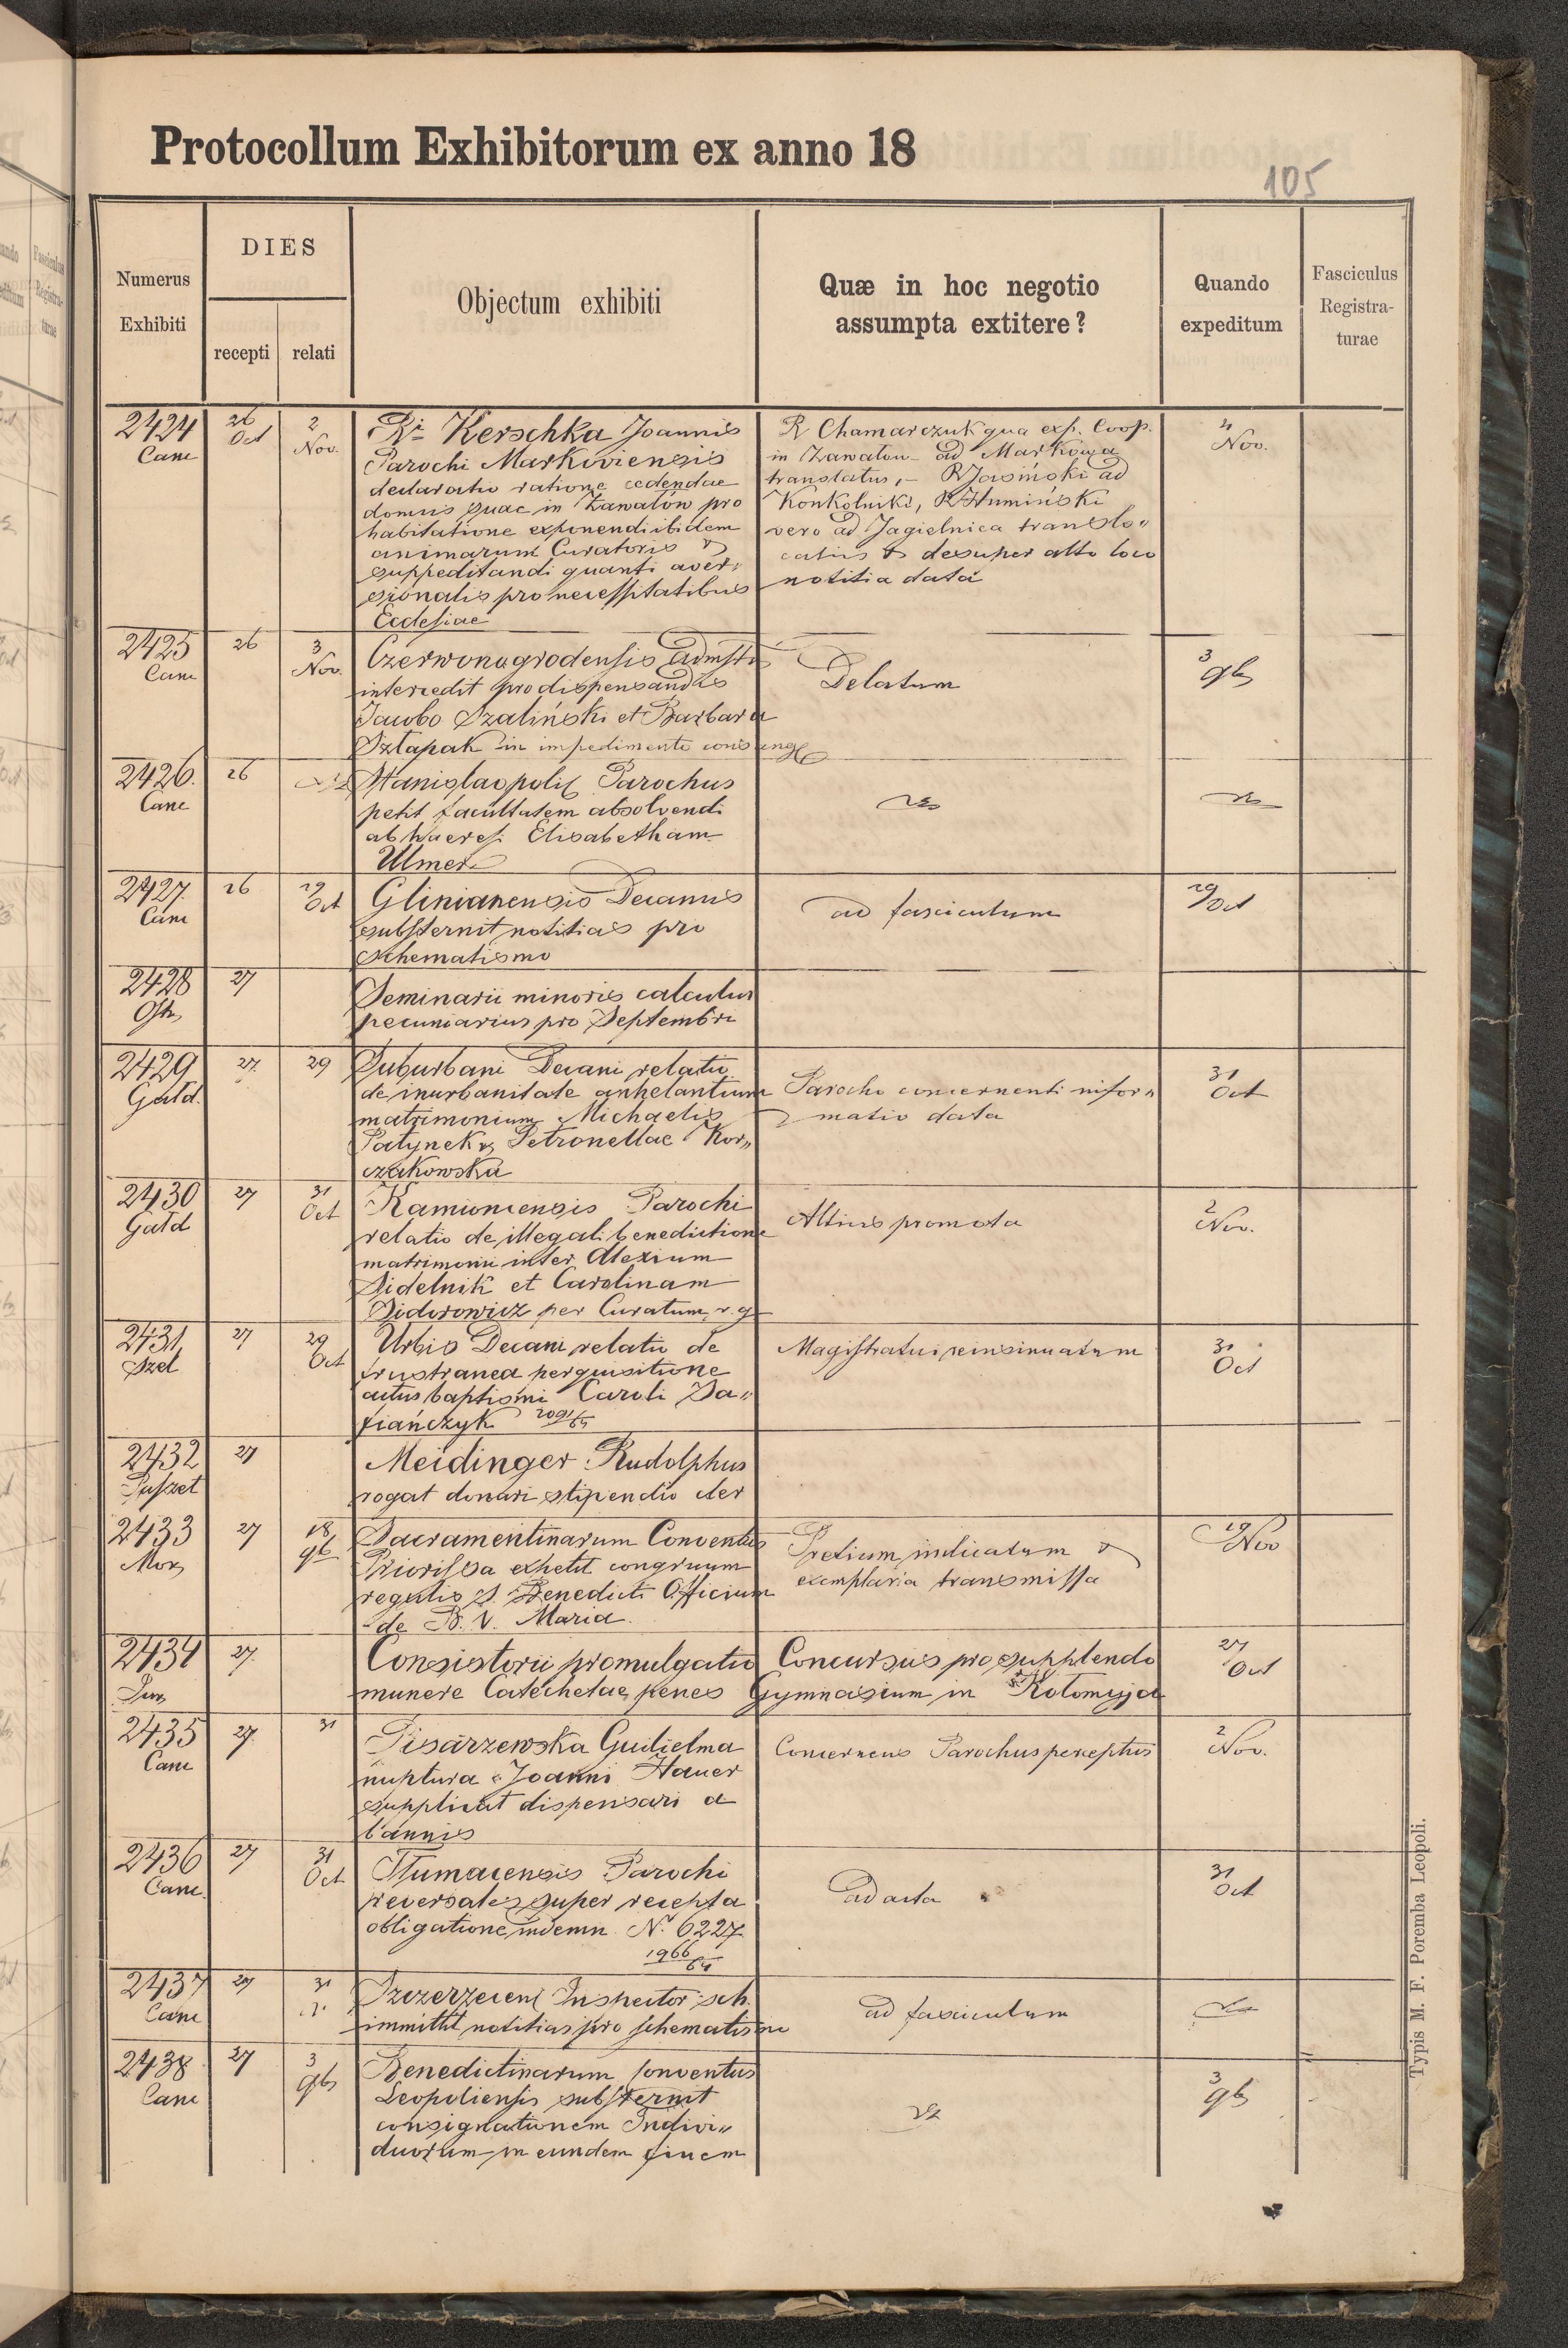 Protocollum Exhibitorum ex anno 18
105
Numerus Exhibiti
DIES
recepti
relati
Objectum exhibiti
Quæ in hoc negotio assumpta extitere?
Quando expeditum
Fasciculus Registra-turae
2424 Canc
26 Oct
2 Nov.
Ri Kerschka Joannis
Parochi Markoviensis
declaratio ratione cedendae
domus quae in Zawałów pro
habitatione exponendi ibidem
animarum Curatoris &
suppeditandi quanti aver„
sionalis pro necessitatibus
Ecclesiae
R Chamarczuk qua exp. Coop.
in Zawałow ad Markowa
translatus, – R Jasiński ad
Konkolniki, R Humiński
vero ad Jagielnica translo„
catus & desuper alto loco
notitia data
4 Nov.
2425 Canc
26
3 Nov.
Czerwonogrodensis Admstr
intercedit pro dispensandis
Jacobo Szaliński et Barbara
Sztapak in impedimento consang
Delatum
3 9b
2426 Canc
26
Stanislaopolis Parochus
petit facultatem absolvendi
ab haeresi Elisabetham
Ulmer
2427 Canc
26
29 Oct
Glinianensis Decanus
substernit notitias pro
Schematismo
ad fasciculum
29 Oct
2428
27
Seminarii minoris calculus
pecuniarius pro Septembri
2429 Gałd.
27.
29
Suburbani Decani relatio
de inurbanitate anhelantium
matrimonium Michaelis
Patynek & Petronellae Kor„
czakowska
Parocho concernenti infor„
matio data
31 Oct
2430 Gałd
27
31 Oct
Kamionensis Parochi
relatio de illegali benedictione
matrimonii inter Alexium
Sidelnik et Carolinam
Sidorowicz per Curatum r. g
Altius promota
2 Nov.
2431 Szel
27
29 Oct
Urbis Decani relatio de
frustranea perquisitione
actus baptismi Caroli Sa„
fiańczyk 2091/65
Magistratui reinsinuatum
31 Oct
2432
27
Meidinger Rudolphus
rogat donari stipendio cler
2433 Mor
27
18 9b
Sacramentinarum Conventus
Priorissa expetit congruum
regulis S. Benedicti Officium
de B. V. Maria.
Pretium indicatum &
exemplaria transmissa
19 Nov
2434
27.
Consistorii promulgatio Concursus pro supplendo
munere Catechetae penes Gymnasium in Kołomyja
27 Oct
2435 Canc
27.
31
Pisarzewska Gulielma
nuptura Joanni Hauer
supplicat dispensari a
bannis
Concernens Parochus perceptus
2 Nov.
2436 Canc.
27
31 Oct
Tłumacensis Parochi
reversales super recepta
obligatione indemn. N. 6227
1966/64
ad acta
31 Oct
2437 Canc
27
31
Szczerzecens Inspector sch.
immittit notitias pro schematismo
ad fasciculum
2438 Canc
27
3 9b
Benedictinarum Conventus
Leopoliensis substernit
consignationem Indivi„
duorum in eundem finem
3 9b
Typis M. F. Poremba Leopoli.